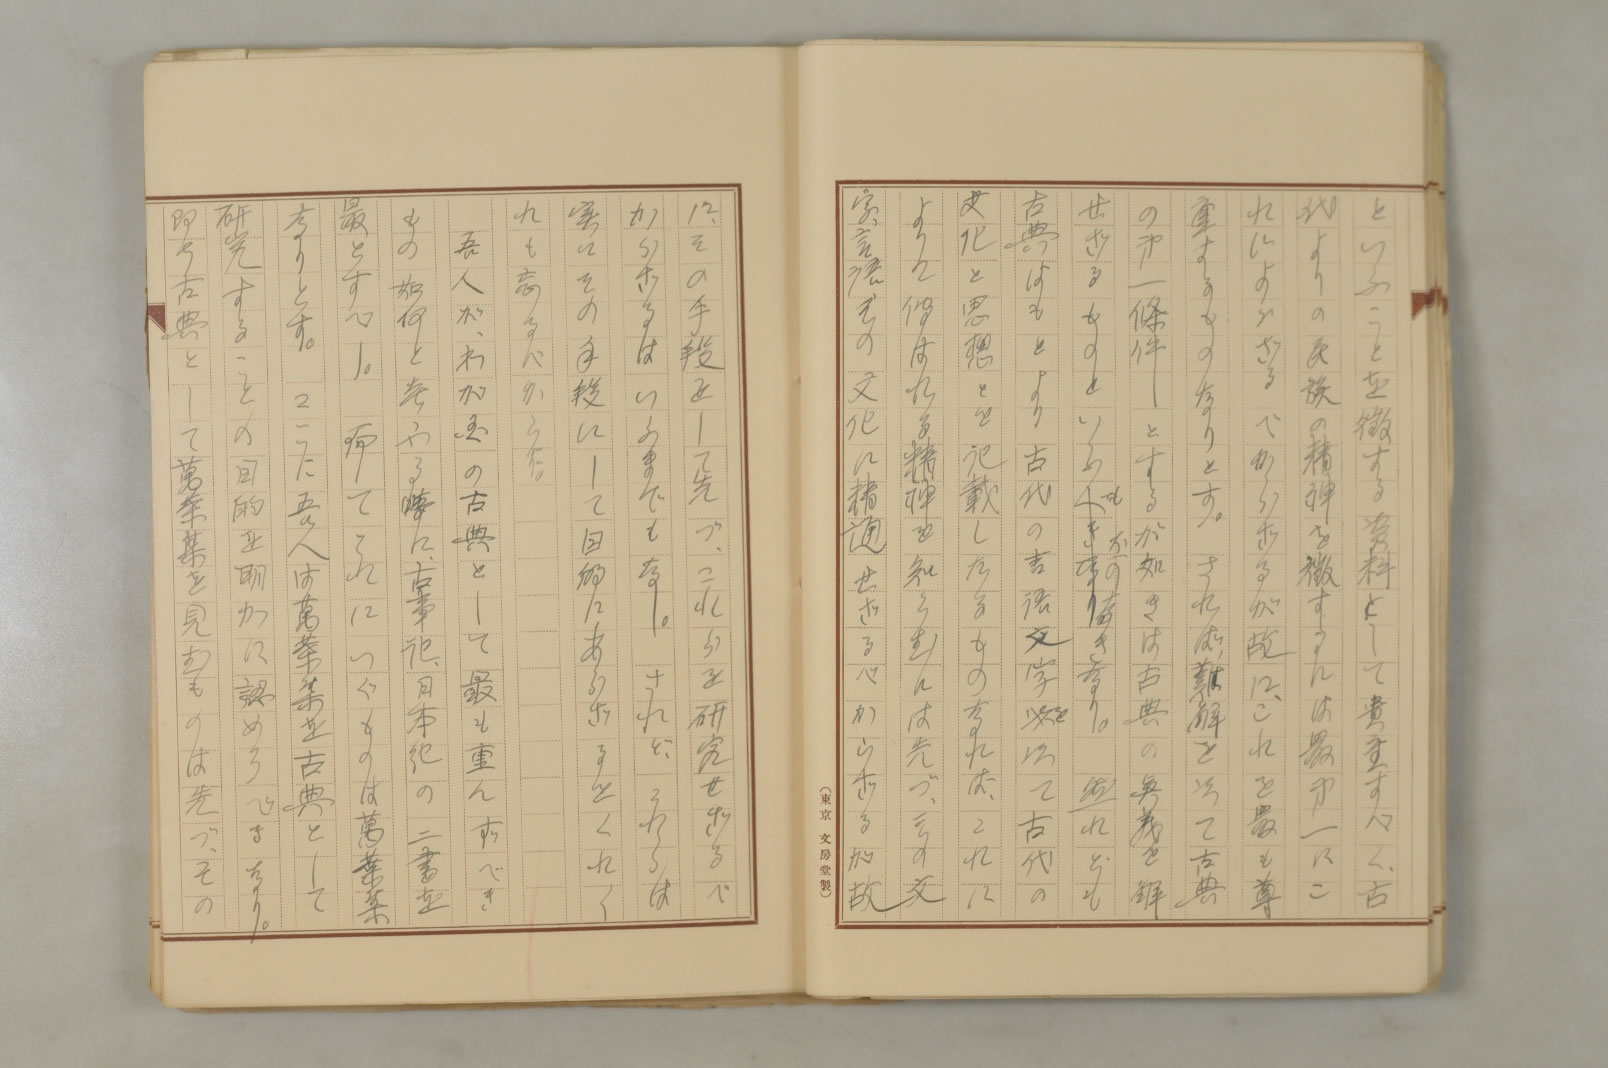 といふことを徴する資料として貴重すべく、古
代よりの民族の精神を徴するには最オ一にこ
れによらざるべからざるが故に、これを最も尊
重するものなりとす。されば、難解を以て古典
のオ一條件としとするが如きは古典の眞義を解
せざるものといふもおのづべきなり。然れども
古典はもとより古代の言語文字を以て古代の
文化と思想とを記載したるものなれば、これに
よりて傳はれる精神を知らむには先づ、その文
字、言語、その文化に精通せざるべからざるが故
(東京 文房堂製)
に、その手段として先づ、これらを研究せざるべ
からざるはいふまでもなし。されど、これらは
実にその手段にして目的にあらざるをくれぐ
れも忘るべからず。
吾人が、わが国の古典として最も重んずべき
もの如何と考ふる時に、古事記、日本紀の二書を
最とすべし。而してこれにつぐものは萬葉集
なりとす。ここに吾人は萬葉集を古典として
研究することの目的を明かに認めうべきなり。
即ち古典として萬葉集を見むものは先づ、その